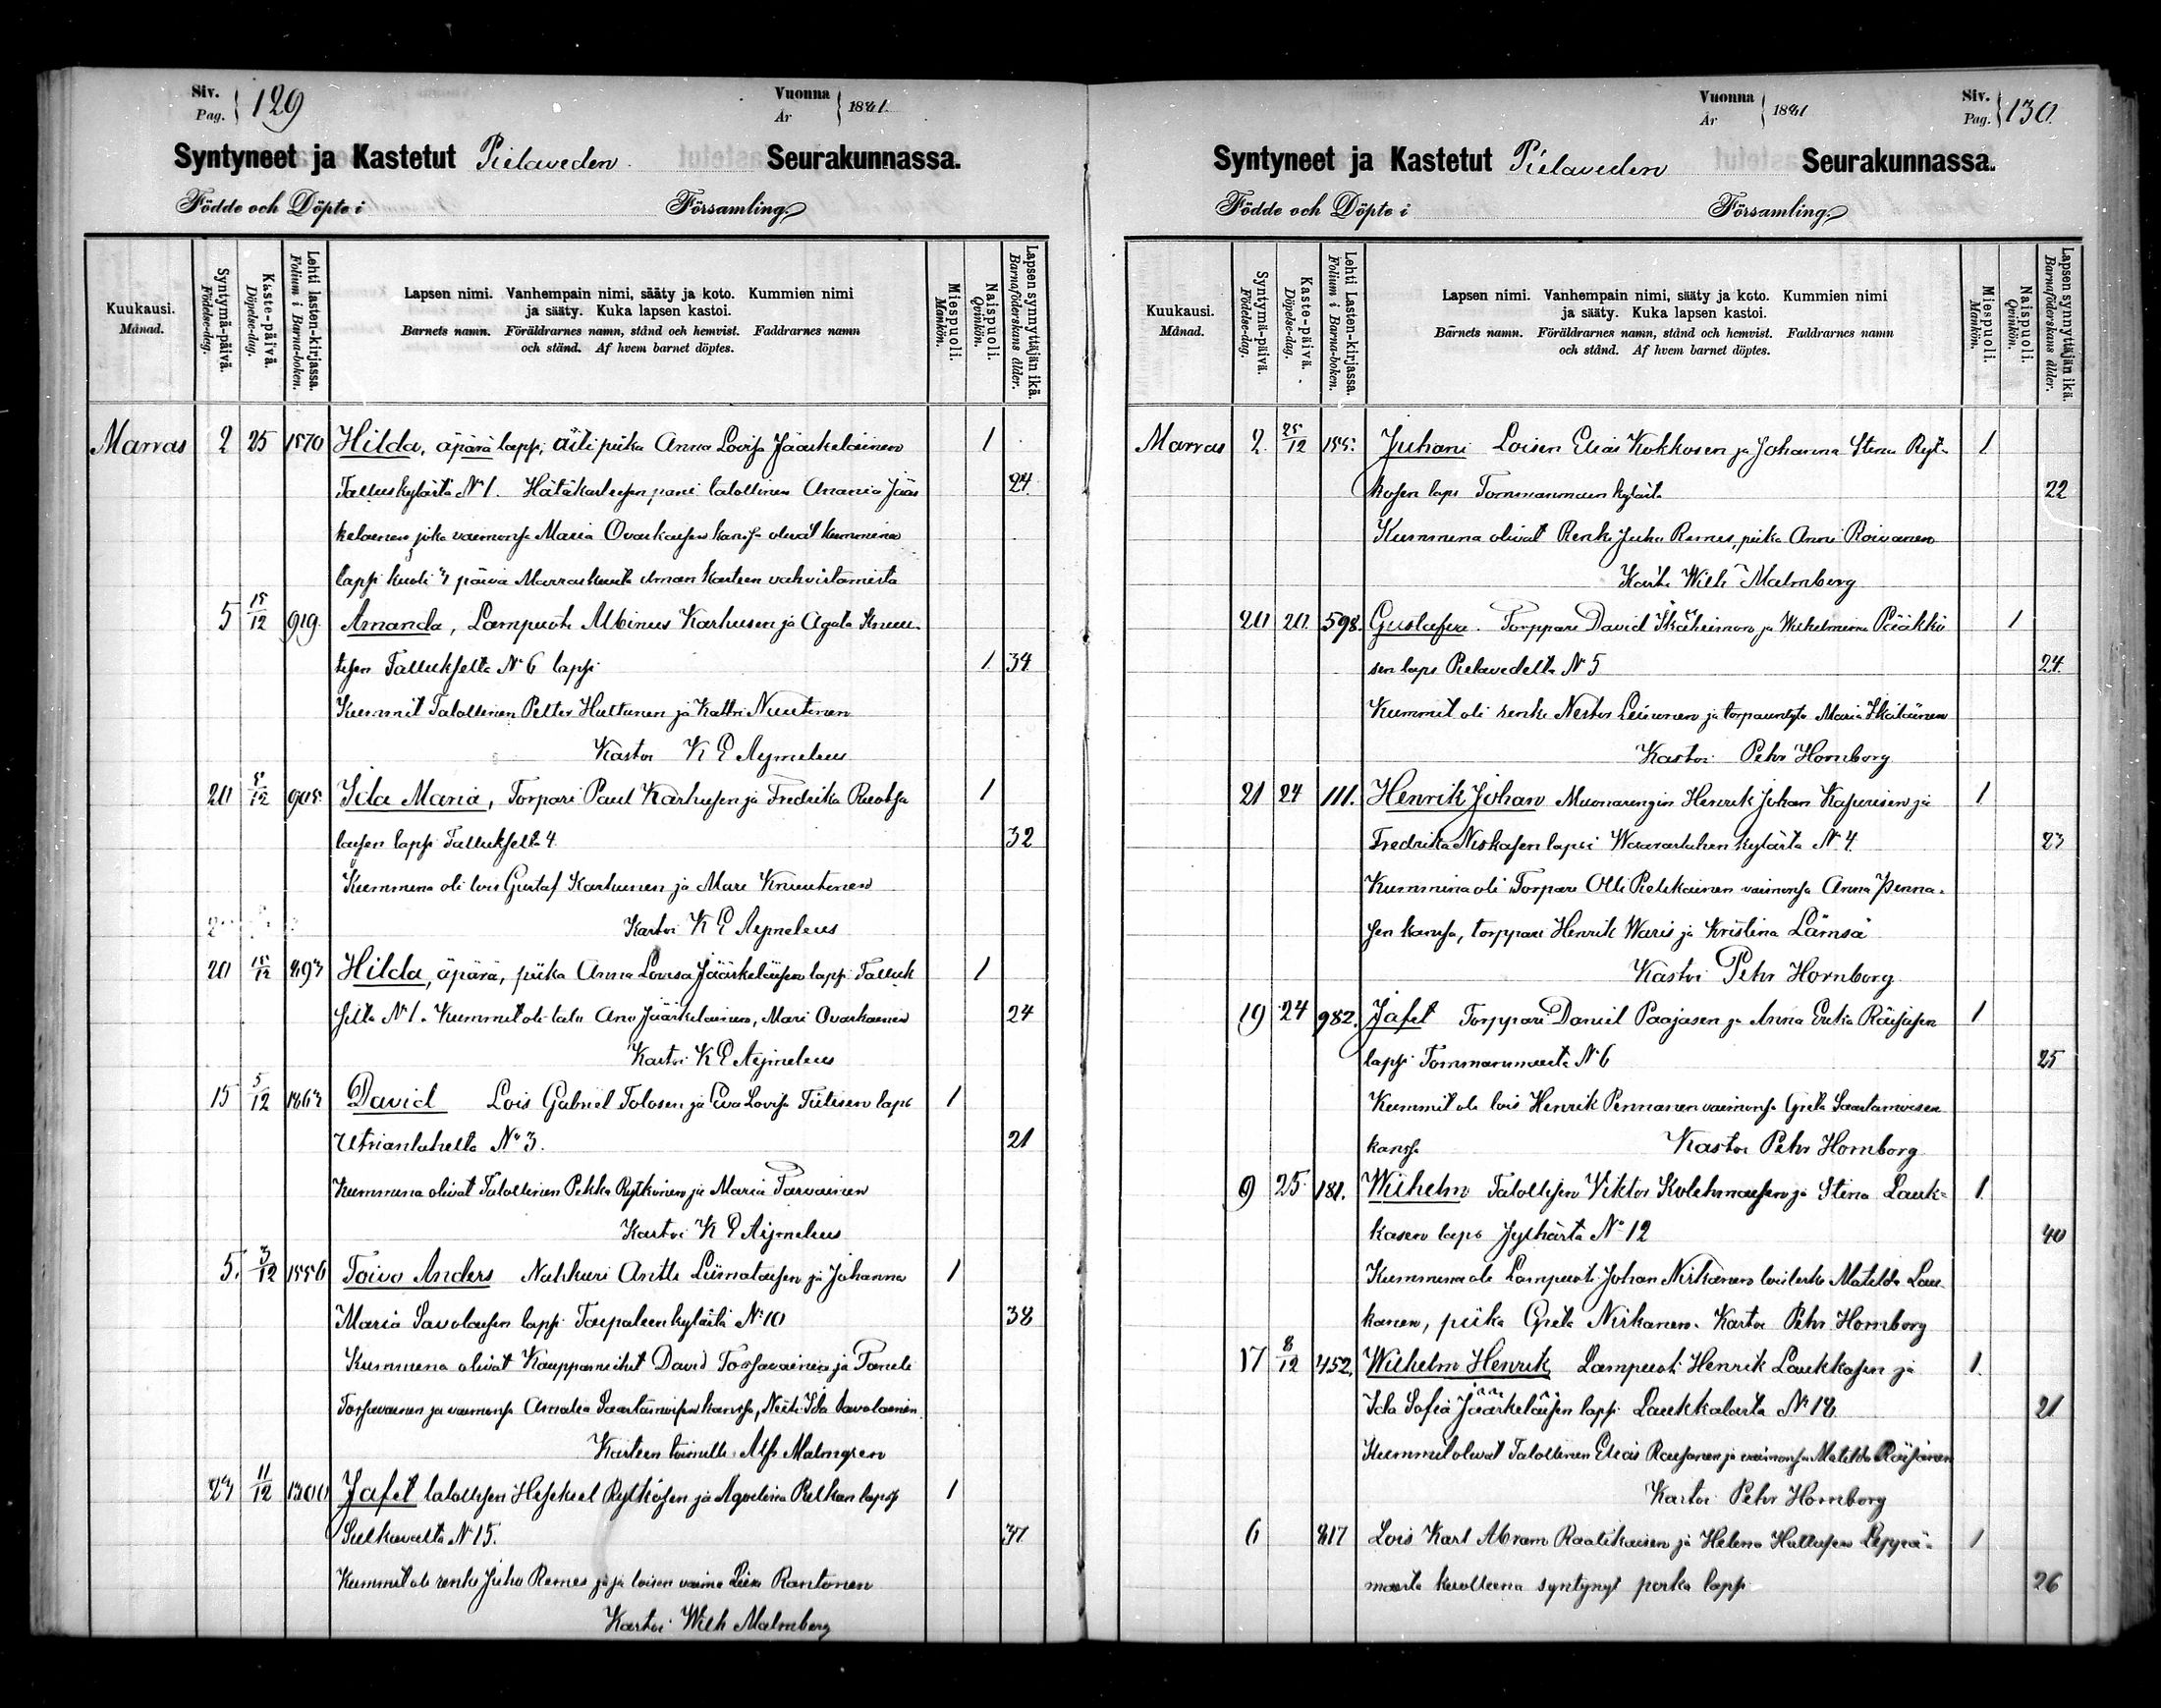 Siv. Pag. 129
Vuonna År 1881.
Syntyneet ja Kastetut Pielaveden Seurakunnassa.
Födde och Döpte i Församling.
Kuukausi. Månad.
Syntymä-päivä. Födelse-dag.
Kaste-päivä. Döpelse-dag.
Lehti lasten-kirjassa. Folium i Barna-boken.
Lapsen nimi. Vanhempain nimi, sääty ja koto. Kummien nimi
ja sääty. Kuka lapsen kastoi.
Barnets namn. Föräldrarnes namn, stånd och hemvist. Faddrarnes namn
och stånd. Af hvem barnet döptes.
Miespuoli. Mankön.
Naispuoli. Qvinkön.
Lapsen synnyttäjän ikä. Barnaföderskans ålder.
Marras 2 25 1570 Hilda, äpärä lapsi, äiti piika Anna Lovisa Jääskeläinen 1
Talluskylästä No 1. Hätäkasteesen pani talollinen Anania Jääs 24
keläinen joka vaimonsa Maria Ovaskaisen kanssa olivat kummina
lapsi kuoli 3 päivä Marraskuuta ilman kasteen vahvistamista
5 15/12 919 Amanda, Lampuoti Albinus Karhusen ja Agata Knuu-
tisen Tallukselta No 6 lapsi 1 34
Kummit Talollinen Petter Huttunen ja Kattri Nuutinen
Kastoi K E Aejmelæus
20 5/12 905 Ida Maria, Torpari Paul Karhusen ja Fredrika Ruotsa 1
laisen lapsi Tallukselta 4 32
Kummina oli lois Gustaf Karhunen ja Mari Knuutinen
Kastoi K E Aejmelæus
20 15/12 893 Hilda, äpärä, piika Anna Lovisa Jääskeläisen lapsi Talluk 1
selta No 1. Kummit oli talo Ana Jääskeläinen, Mari Ovaskainen 24
Kastoi K E Aejmelæus
15 5/12 1863 David Lois Gabriel Tolosen ja Eva Lovisa Tiitisen laps 1
Utrianlahelta No 3. 21
Kummina olivat Talollinen Pekka Rytkönen ja Maria Tarvainen
Kastoi K E Aejmelæus
5. 3/12 1556 Toivo Anders Nahkuri Antti Liimataisen ja Johanna 1
Maria Savolaisen lapsi Taipaleenkylästä No 10 38
Kummina olivat Kauppamiehet David Torsavainen ja Taneli
Torsavainen ja vaimonsa Amalia Saastamoisen kanssa, Neiti Ida Savolainen
Kasteen toimitti Alfr Malmgren
23 11/12 1300 Jafet talollisen Hesekiel Rytkösen ja Agvelina Pelkan lapsi 1
Sulkavalta No 15. 37
Kummit oli renki Juho Remes ja ja loisen vaimo Liisa Rantonen
Kastoi Wilh Malmberg
Vuonna År 1881
Siv. Pag. 130.
Syntyneet ja Kastetut Pielaveden Seurakunnassa.
Födde och Döpte i Församling.
Kuukausi. Månad.
Syntymä-päivä. Födelse-dag.
Kaste-päivä. Döpelse-dag.
Lehti Lasten-kirjassa. Folium i Barna-boken.
Lapsen nimi. Vanhempain nimi, sääty ja koto. Kummien nimi
ja sääty. Kuka lapsen kastoi.
Barnets namn. Föräldrarnes namn, stånd och hemvist. Faddrarnes namn
och stånd. Af hvem barnet döptes.
Miespuoli. Mankön.
Naispuoli. Qvinkön.
Lapsen synnyttäjän ikä. Barnaföderskans ålder.
Marras 2. 25/12 155. Juhani Loisen Elias Kokkosen ja Johanna Stina Ryt- 1
kosen laps Tommanmaen kylästä 22
Kummina olivat Renki Juho Remes, piika Anni Roivanen
Kast. Wilh Malmberg
20 20. 598. Gustafva. Torppari David Ikäheimon ja Wilhelmina Pääkkö 1
sen laps Pielavedelta N 5 24.
Kummit oli renki Nestor Leinonen ja torparintyto Maria Ikäläinen
Kastoi Pehr Hornborg
21 24 111. Henrik Johan Muonarengin Henrik Johan Kasurisen ja 1
Fredrika Niskasen lapsi Waaraslahen kylästä N 4. 23
Kummina oli Torpari Olli Pielikainen vaimonsa Anna Penna-
sen kanssa, torppari Henrik Waris ja Kristina Lämsä
Kastoi Pehr Hornborg
19 24 982. Jafet Torppari Daniel Paajasen ja Anna Erika Räisäsen 1
lapsi Tommanmaeltä N 6 25
Kummit oli lois Henrik Pennanen vaimonsa Greta Saastamoisen
kanssa Kastoi Pehr Hornborg
9 25 181. Wilhelm Talollisen Viktor Kolehmaisen ja Stina Lauk= 1
kasen laps Jylhästä No 12 40
Kummina oli Lampuoti Johan Niskanen loisleski Matilda Lau-
kanen, piika Greta Niskanen. Kastoi Pehr Hornborg
17 8/12 452. Wilhelm Henrik Lampuoti Henrik Laukkasen ja 1.
Ida Sofia Jääskeläisen lapsi Laukkalasta No 18. 21
Kummit olivat Talollinen Elias Räisänen ja vaimonsa Matilda Räisänen
Kastoi Pehr Hornborg
6 817 Lois Karl Abram Raatikaisen ja Helena Hallusen Leppä- 1
maelta kuolleena syntynyt poika lapsi 26